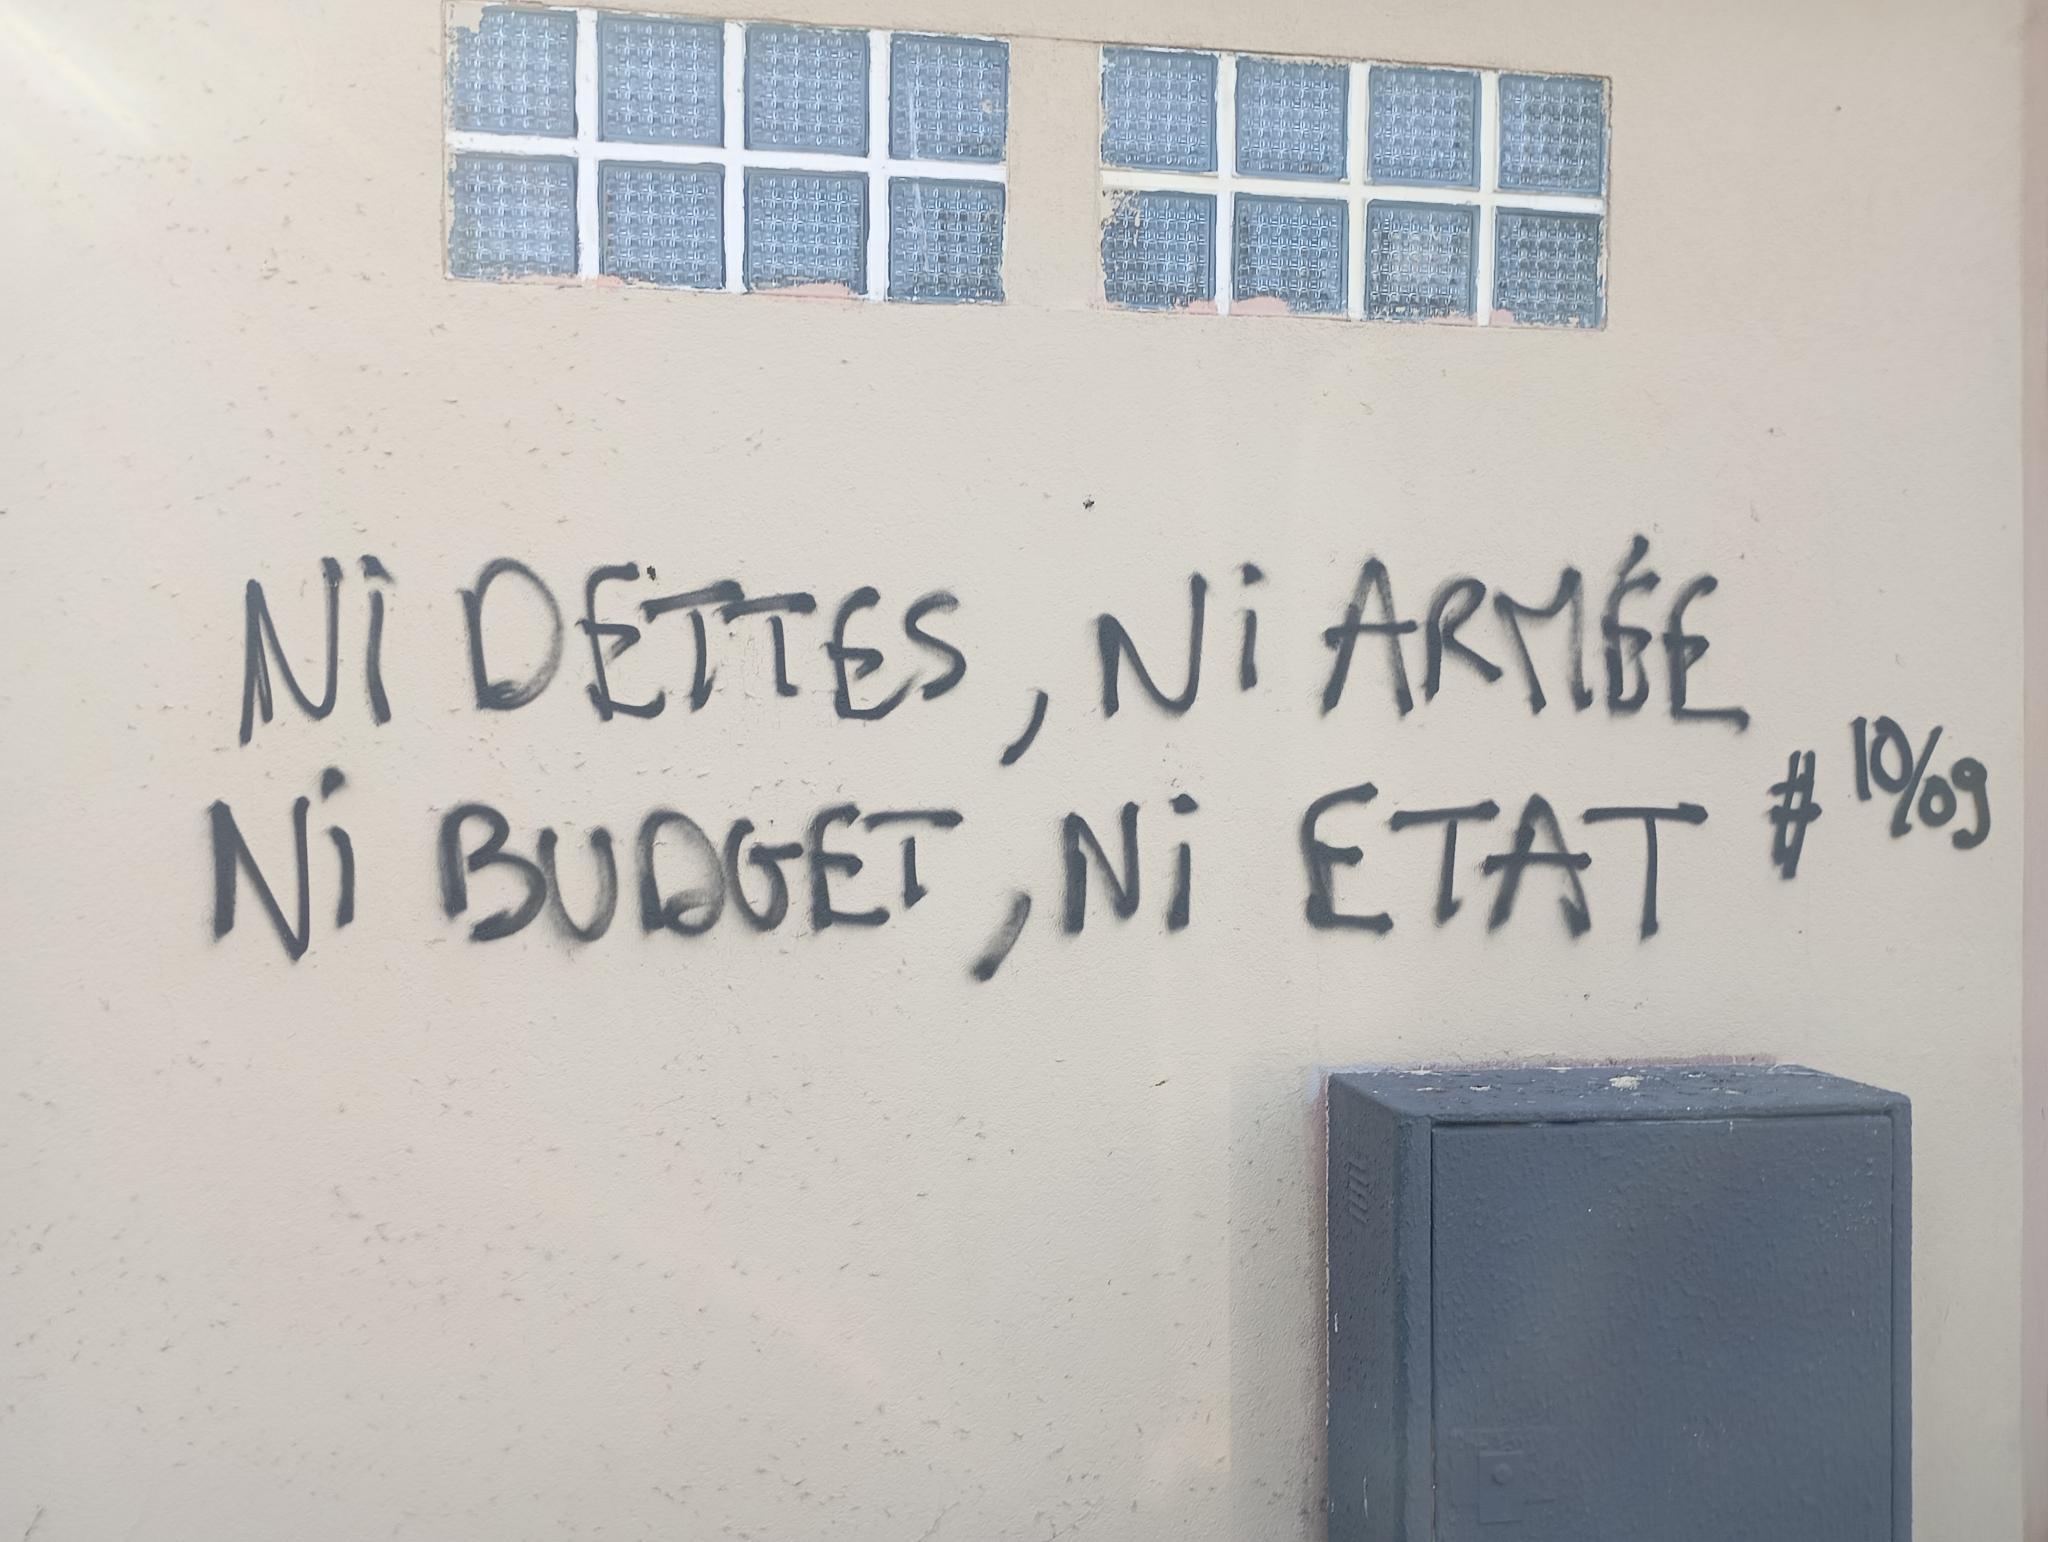 Ni DETTES, Ni ARMÉE
Ni BUDGET, Ni ETAT # 10/09